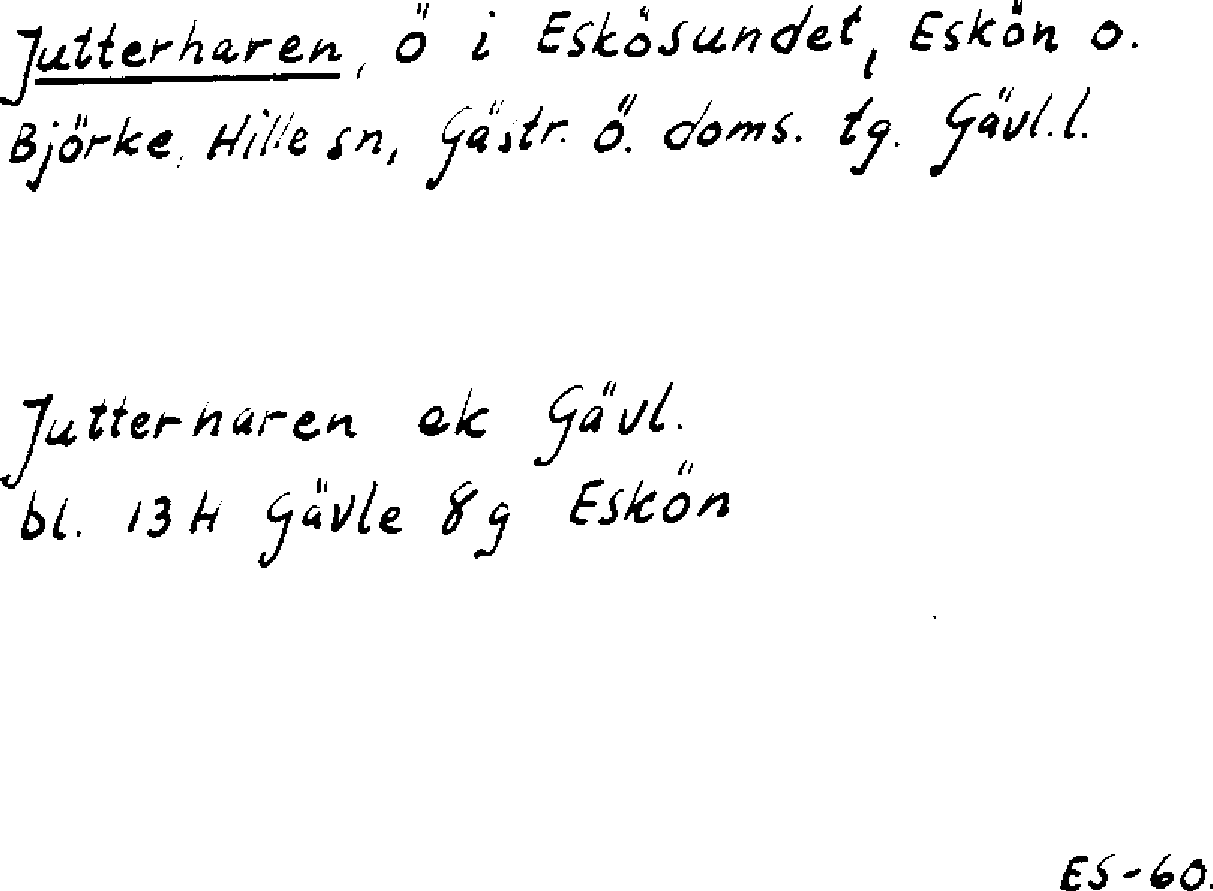 Jutterharen, ö i Eskösundet, Eskön o.
Björke, Hille sn, Gästr. ö. doms. tg. Gävl.l.
Jutterharen ek Gävl.
bl. 13H Gävle 8g Eskön
ES-60.